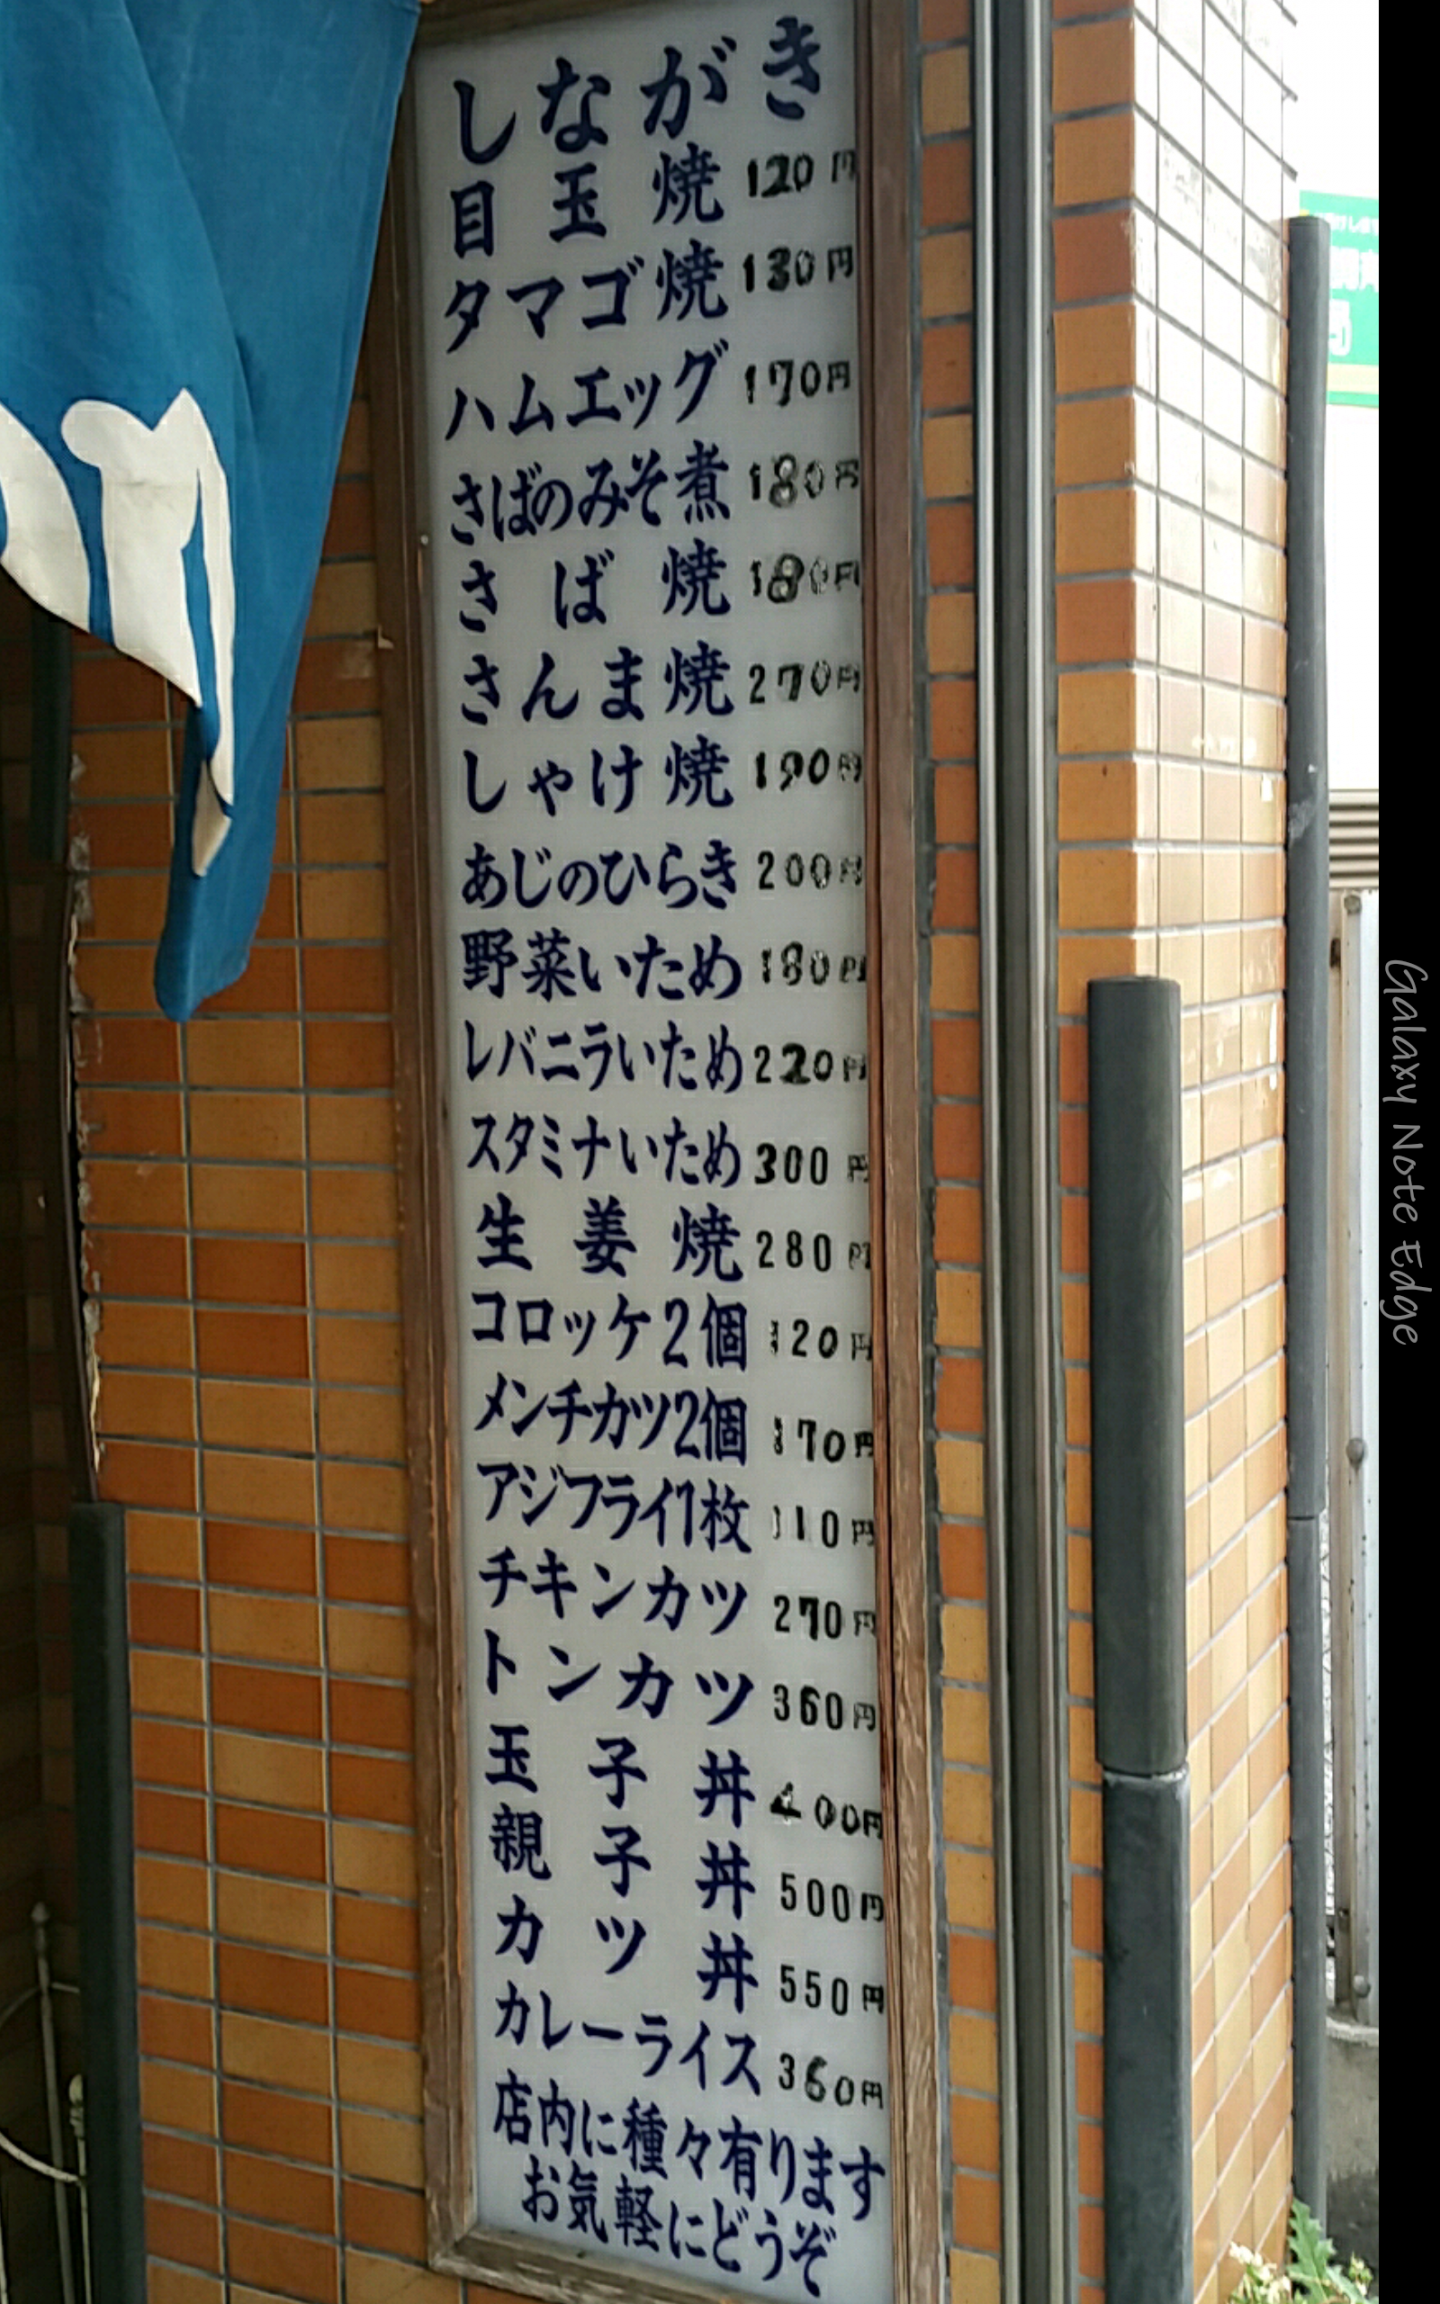 しながき
目玉焼 120円
タマゴ焼 130円
ハムエッグ 170円
さばのみそ煮 180円
さば焼 180円
さんま焼 270円
しゃけ焼 190円
あじのひらき 200円
野菜いため 180円
レバニラいため 220円
スタミナいため 300円
生姜焼 280円
コロッケ2個 120円
メンチカツ2個 170円
アジフライ1枚 110円
チキンカツ 270円
トンカツ 360円
玉子丼 400円
親子丼 500円
カツ丼 550円
カレーライス 360円
店内に種々有ります
お気軽にどうぞ
Galaxy Note Edge